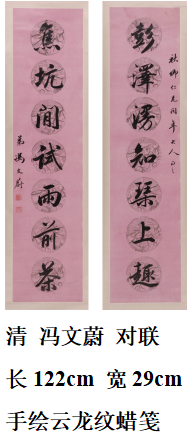 秋卿仁兄同年大人正之
彭澤知琴上趣
焦坑閒試雨前茶
弟馮文蔚
清 冯文蔚 对联
长 122cm 宽 29cm
手绘云龙纹蜡笺